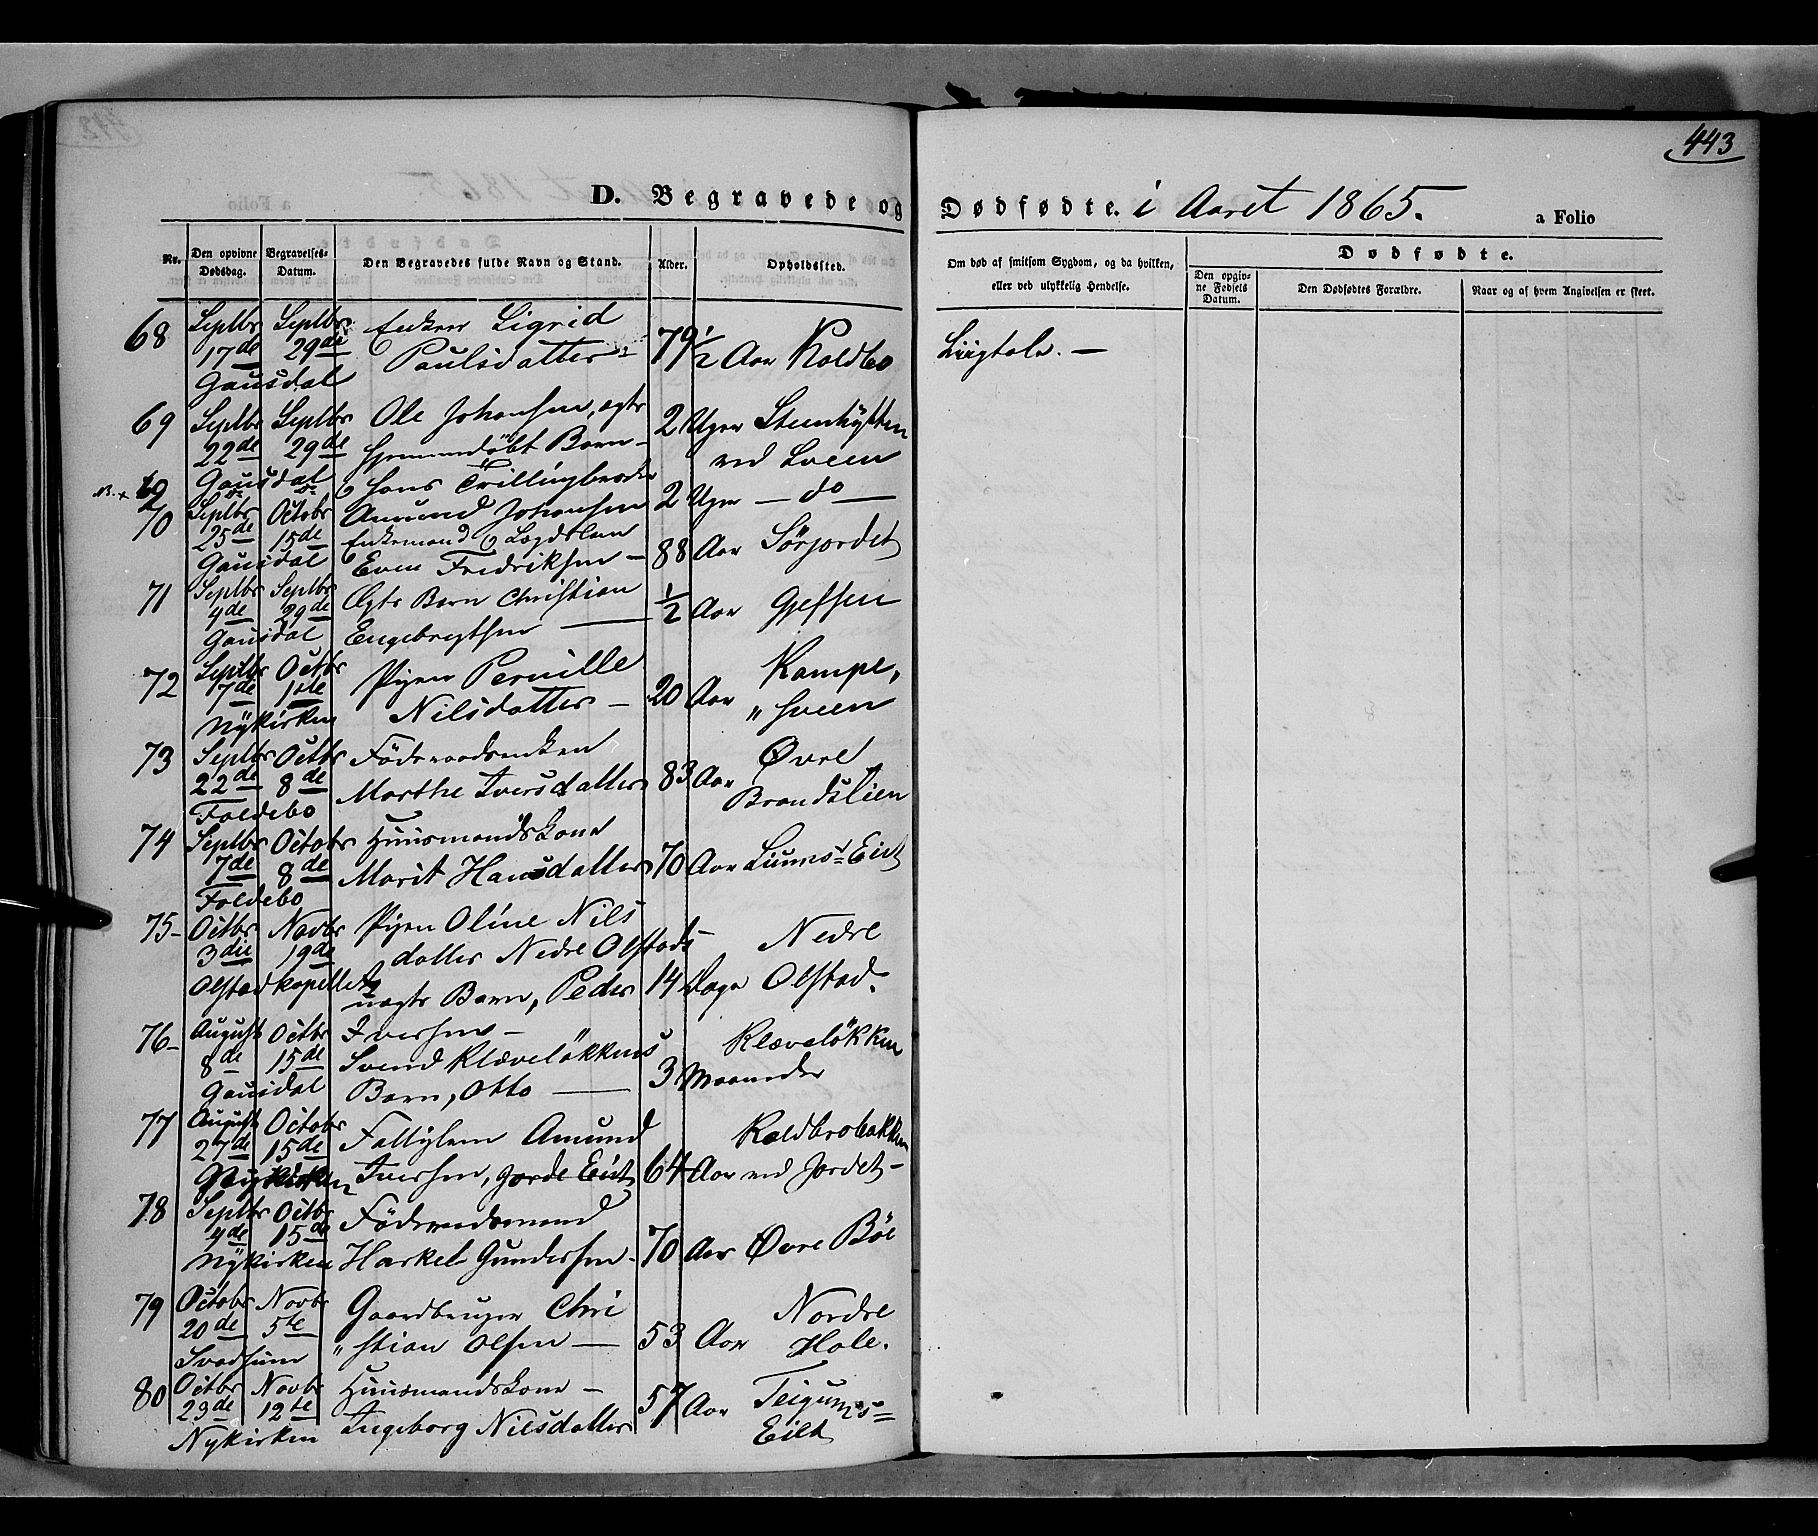 443
D. Begravede og Dødfødte. i Aaret 1865. a Folio
Nr.
Den opgivne Dødsdag.
Begravelses-Datum.
Den Begravedes fulde Navn og Stand.
Alder.
Opholdssted.
Om død af smitsom Sygdom, og da hvilken,
eller ved ulykkelig Hendelse.
Dødfødte.
Den opgivne Fødsels Datum.
Den Dødfødtes Forældre.
Naar og af hvem Angivelsen er skeet.
68 Septbr Septbr Enken Sigrid
17de 29de Paulsdatter 79 1/2 Aar Koldbo
Gausdal
69 Septbr Septbr Ole Johansen, ægte 2 Uger Steenhytten
22de 29de hjemmedøbt Barn – ved Sveen
Gausdal
69 hans Trillingbroder
Amund Johansen 2 Uger – do –
70 Septbr Octobr Enkemand og Lægdslem
25de 15de Even Fredriksen – 88 Aar Sørjordet
Gausdal
71 Septbr Septbr Ægte Barn Christian
4de 29de Engebregtsen – 1/2 Aar Gjefsen
Gausdal
72 Septbr Octbr Pigen Pernille
17de 1ste Nilsdatter – 20 Aar Kampe„
Nÿkirken „sveen
73 Septbr Octbr Föderaadsenken Øvre
22de 8de Marthe Iversdatter 83 Aar Brandslien
Foldebo
74 Septbr Octobr Huusmandskone
7de 8de Marit Hansdatter 70 Aar Liums=Eiet
Foldebo
75 – Octbr Novbr Pigen Oline Nils
3die 19de datter Nedre Olstads Nedre
Olstadkapellet uægte Barn, Peder 14 Dage Olstad.
76 – August Octbr Iversen –
8de 15de Svend Klæveløkkens Klæveløkken
Gausdal Barn, Otto – 3 Maaneder
77 August Octobr Fattiglem Amund Koldbrobakken
27de 15de Iversen, Jorde Eiet 64 Aar ved Jordet –
Nykirken
78 Septbr Octbr Föderaadsmand
4de 15de Harkel Gundersen – 70 Aar Øvre Böe
Nÿkirken
79 Octobr Novbr Gaardbruger Chri Nordre
20de 5te „stian Olsen – 53 Aar Hole.
Svadsum
80 Octbr Novbr Huusmandskone – Teigums=
29de 12te Ingeborg Nilsdatter 57 Aar Eiet
Nykirken